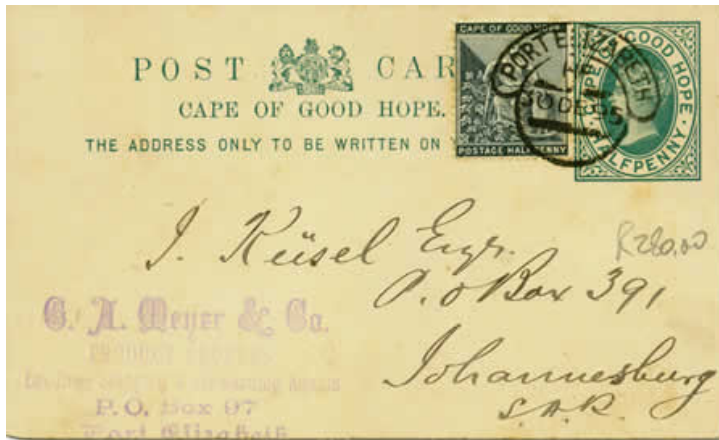 POST CAR
CAPE OF GOOD HOPE.
THE ADDRESS ONLY TO BE WRITTEN ON
CAPE OF GOOD HOPE
POSTAGE HALFPENNY
PORT ELIZABETH
DE 95
GOOD HOPE
HALFPENNY
J. Küsel Esqr.
R280,00
P.O Box 391
Johannesburg
S.A.R.
G. A. Meyer & Co.
PRODUCE
P.O. Box 97
Port Elizabeth